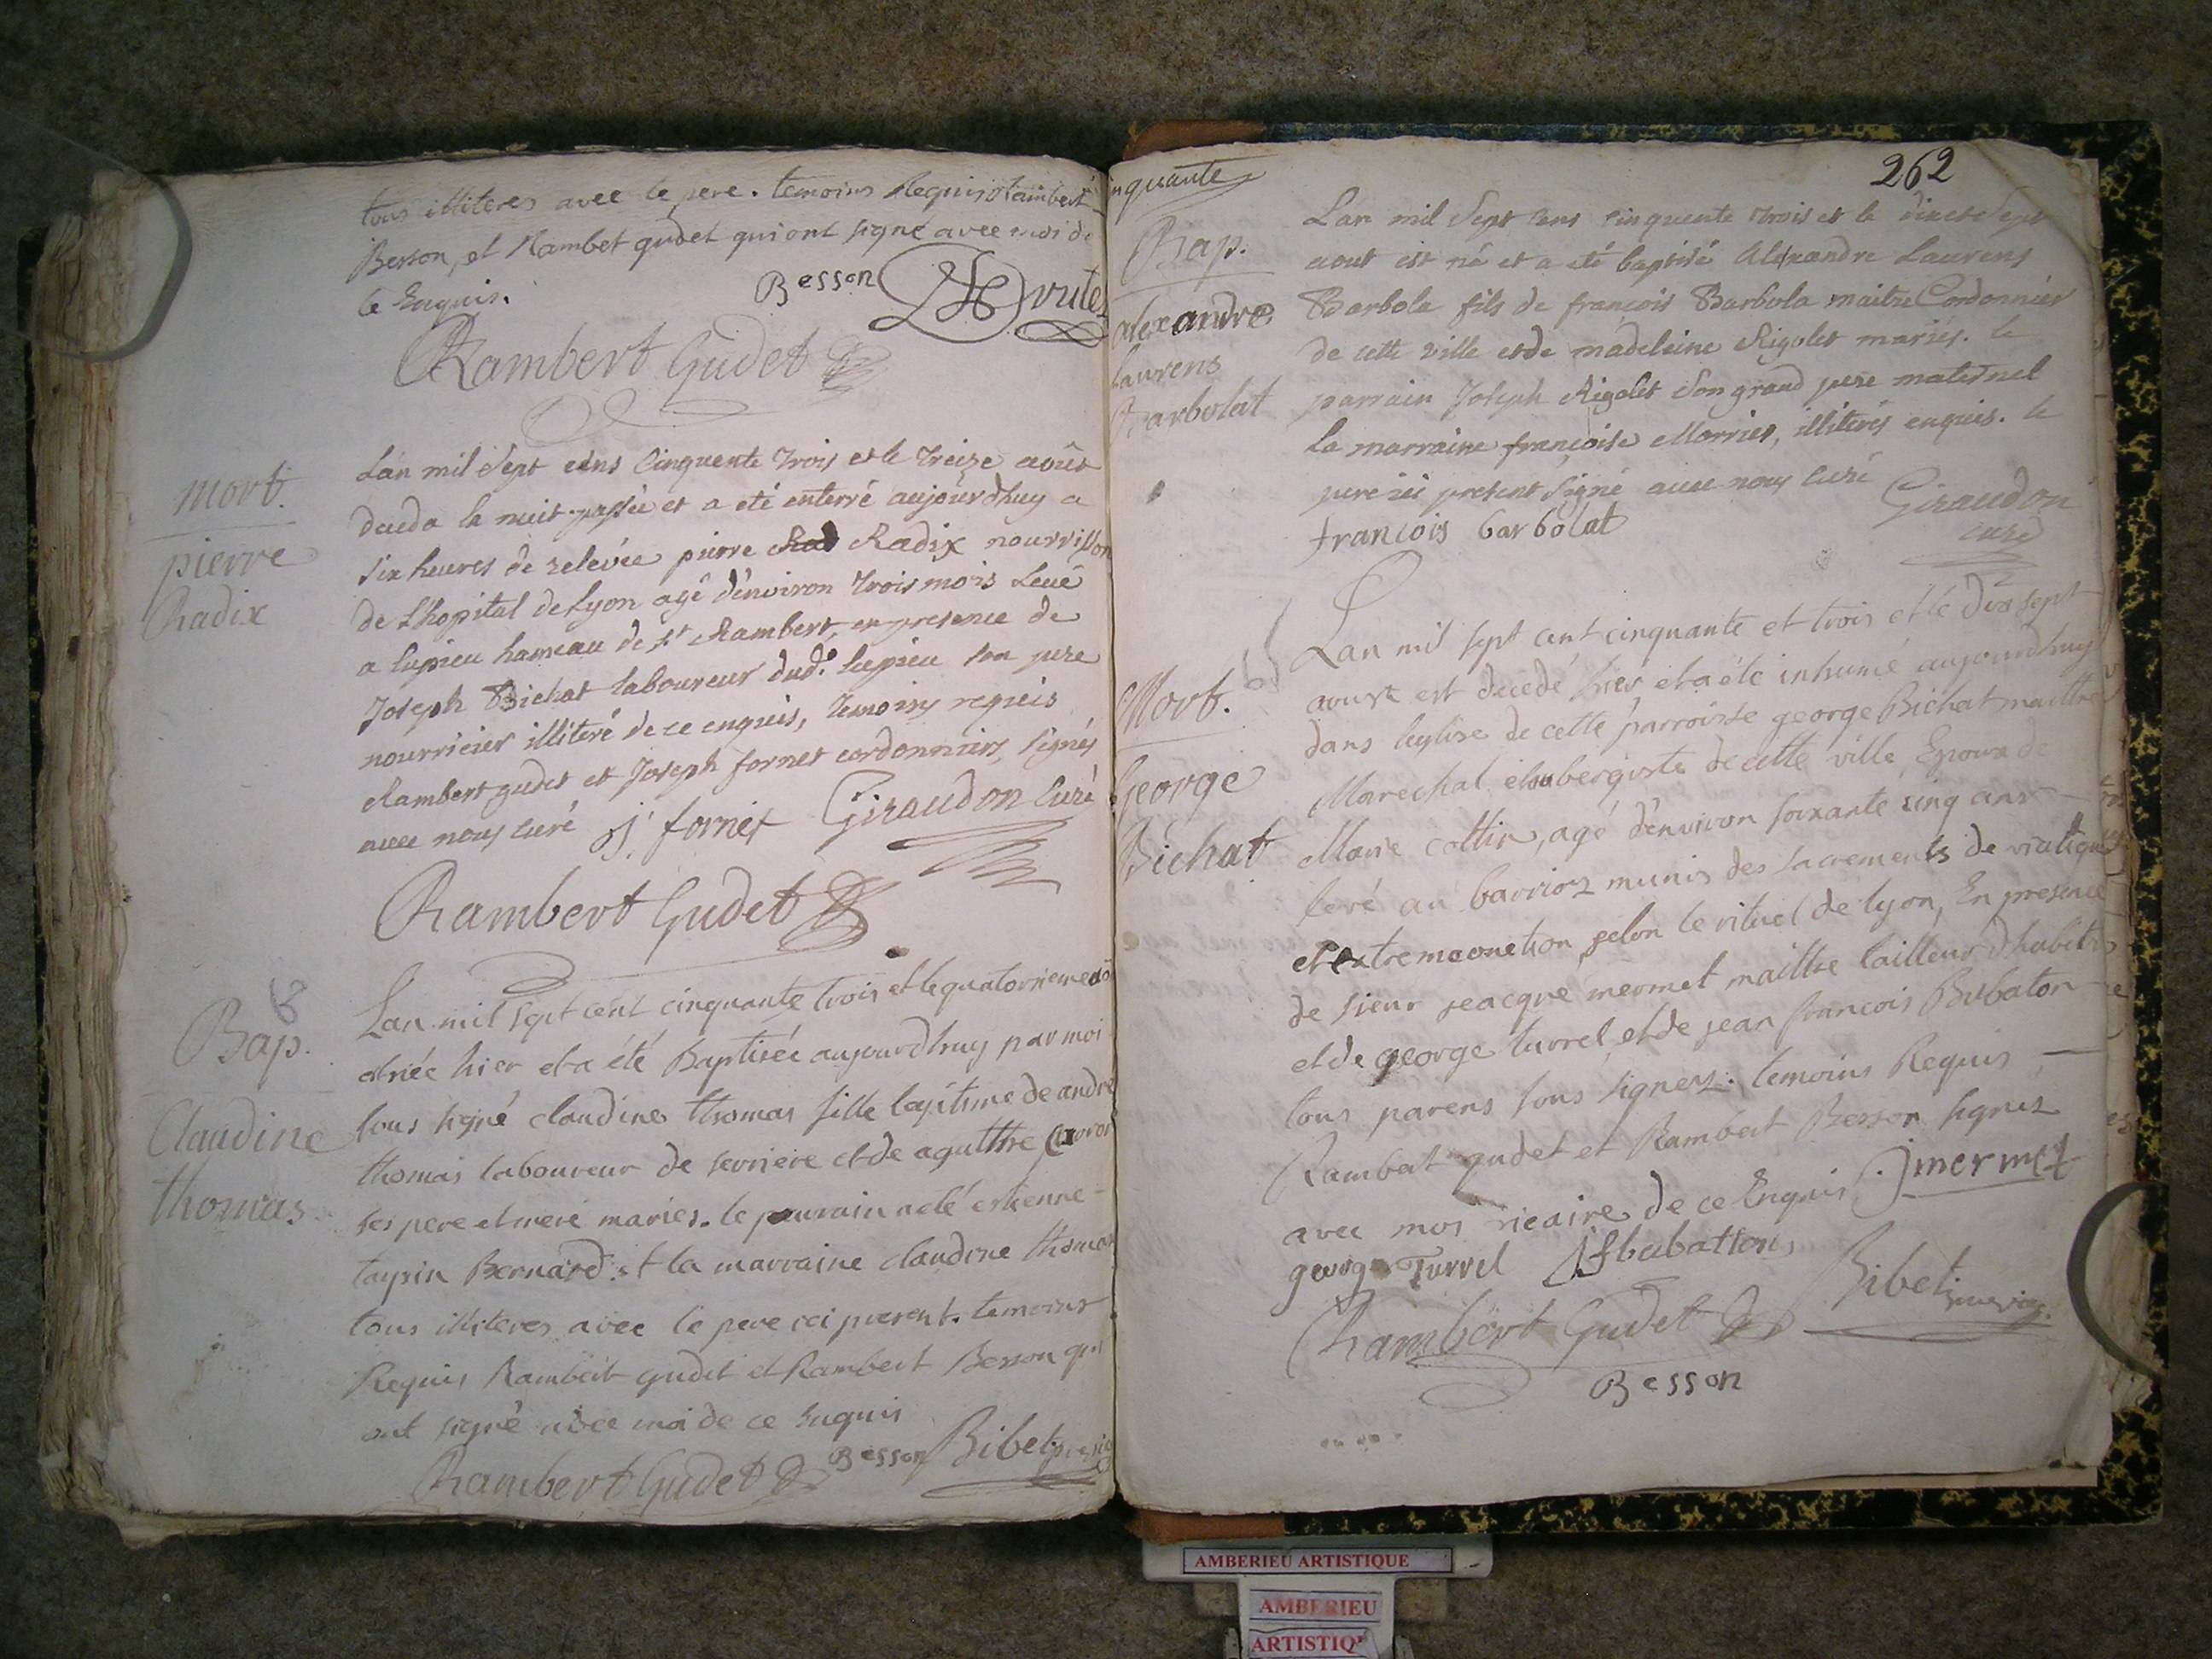 tous illiteres avec le pere. temoins Requis Rambert
Besson, et Rambet gudet qui ont signé avec moi de
ce Enquis.
Besson
Rambert Gudet
mort.
pierre
Radix
Lan mil sept cens Cinquente trois et le treize août
deceda la nuit passée et a eté enterré aujourdhuy a
six heures de relevée pierre Radix nourrisson
de L'hopital de Lyon agé d'environ trois mois Levé
a lupieu hameau de st Rambert, en presence de
Joseph Bichat laboureur dud. lupieu son pere
nourricier illiteré de ce enquis, temoins requis
Rambert gudet et Joseph fornet cordonniers, signés
avec nous curé j. fornet Giraudon Curé
Rambert Gudet
Bap.
Claudine
thomas
Lan mil sept cent cinquante trois et le quatorsieme
est née hier et a été Baptisée aujourdhuy par moi
sous signé claudine thomas fille legitime de andré
thomas laboureur de serriere et de aguthe
ses pere et mere mariés. le parrain a eté estienne
taysin Bernard et la marraine claudine thomas
tous illiteres avec le pere ici present. temoins
Requis Rambert gudet et Rambert Besson qui
ont signé avec moi de ce Enquis
Rambert Gudet Besson Bibet
inquante
262
Bap.
alexandre
laurens
Barbolat
Lan mil Sept Cens Cinquente trois et le dixet Sept
aout est né et a eté baptisé Alexandre Laurens
Barbola fils de francois Barbola maitre Cordonnier
de cette ville et de madeleine Rigolet mariés. le
parrain Joseph Rigolet Son grand pere maternel
la marraine françoise Morrier, illiterés enquis. le
pere ici present signé avec nous curé
francois barbolat Giraudon
curé
Mort.
George
Bichat
Lan mil sept cent cinquante et trois et le dix sept
aoust est decedé hier et a été inhumé aujourdhuy
dans leglise de cette parroisse george Bichat maittre
Marechal et aubergiste de cette ville, Epoux de
Marie cottin, agé d'environ soixante cinq ans
levé au barrioz munis des sacrements de viatique
et extremeonction selon le rituel de lyon, En presence
de sieur jeacque mermet maittre tailleur dhabits
et de george turrel, et de jean francois Bubaton
tous parens sous signez. temoins Requis
Rambert gudet et Rambert Besson signez
avec moi vicaire de ce Enquis Jmermet
george Turrel Jfbubatton
Bibet
Rambert Gudet
Besson
AMBERIEU ARTISTIQUE
AMBERIEU
ARTISTIQ